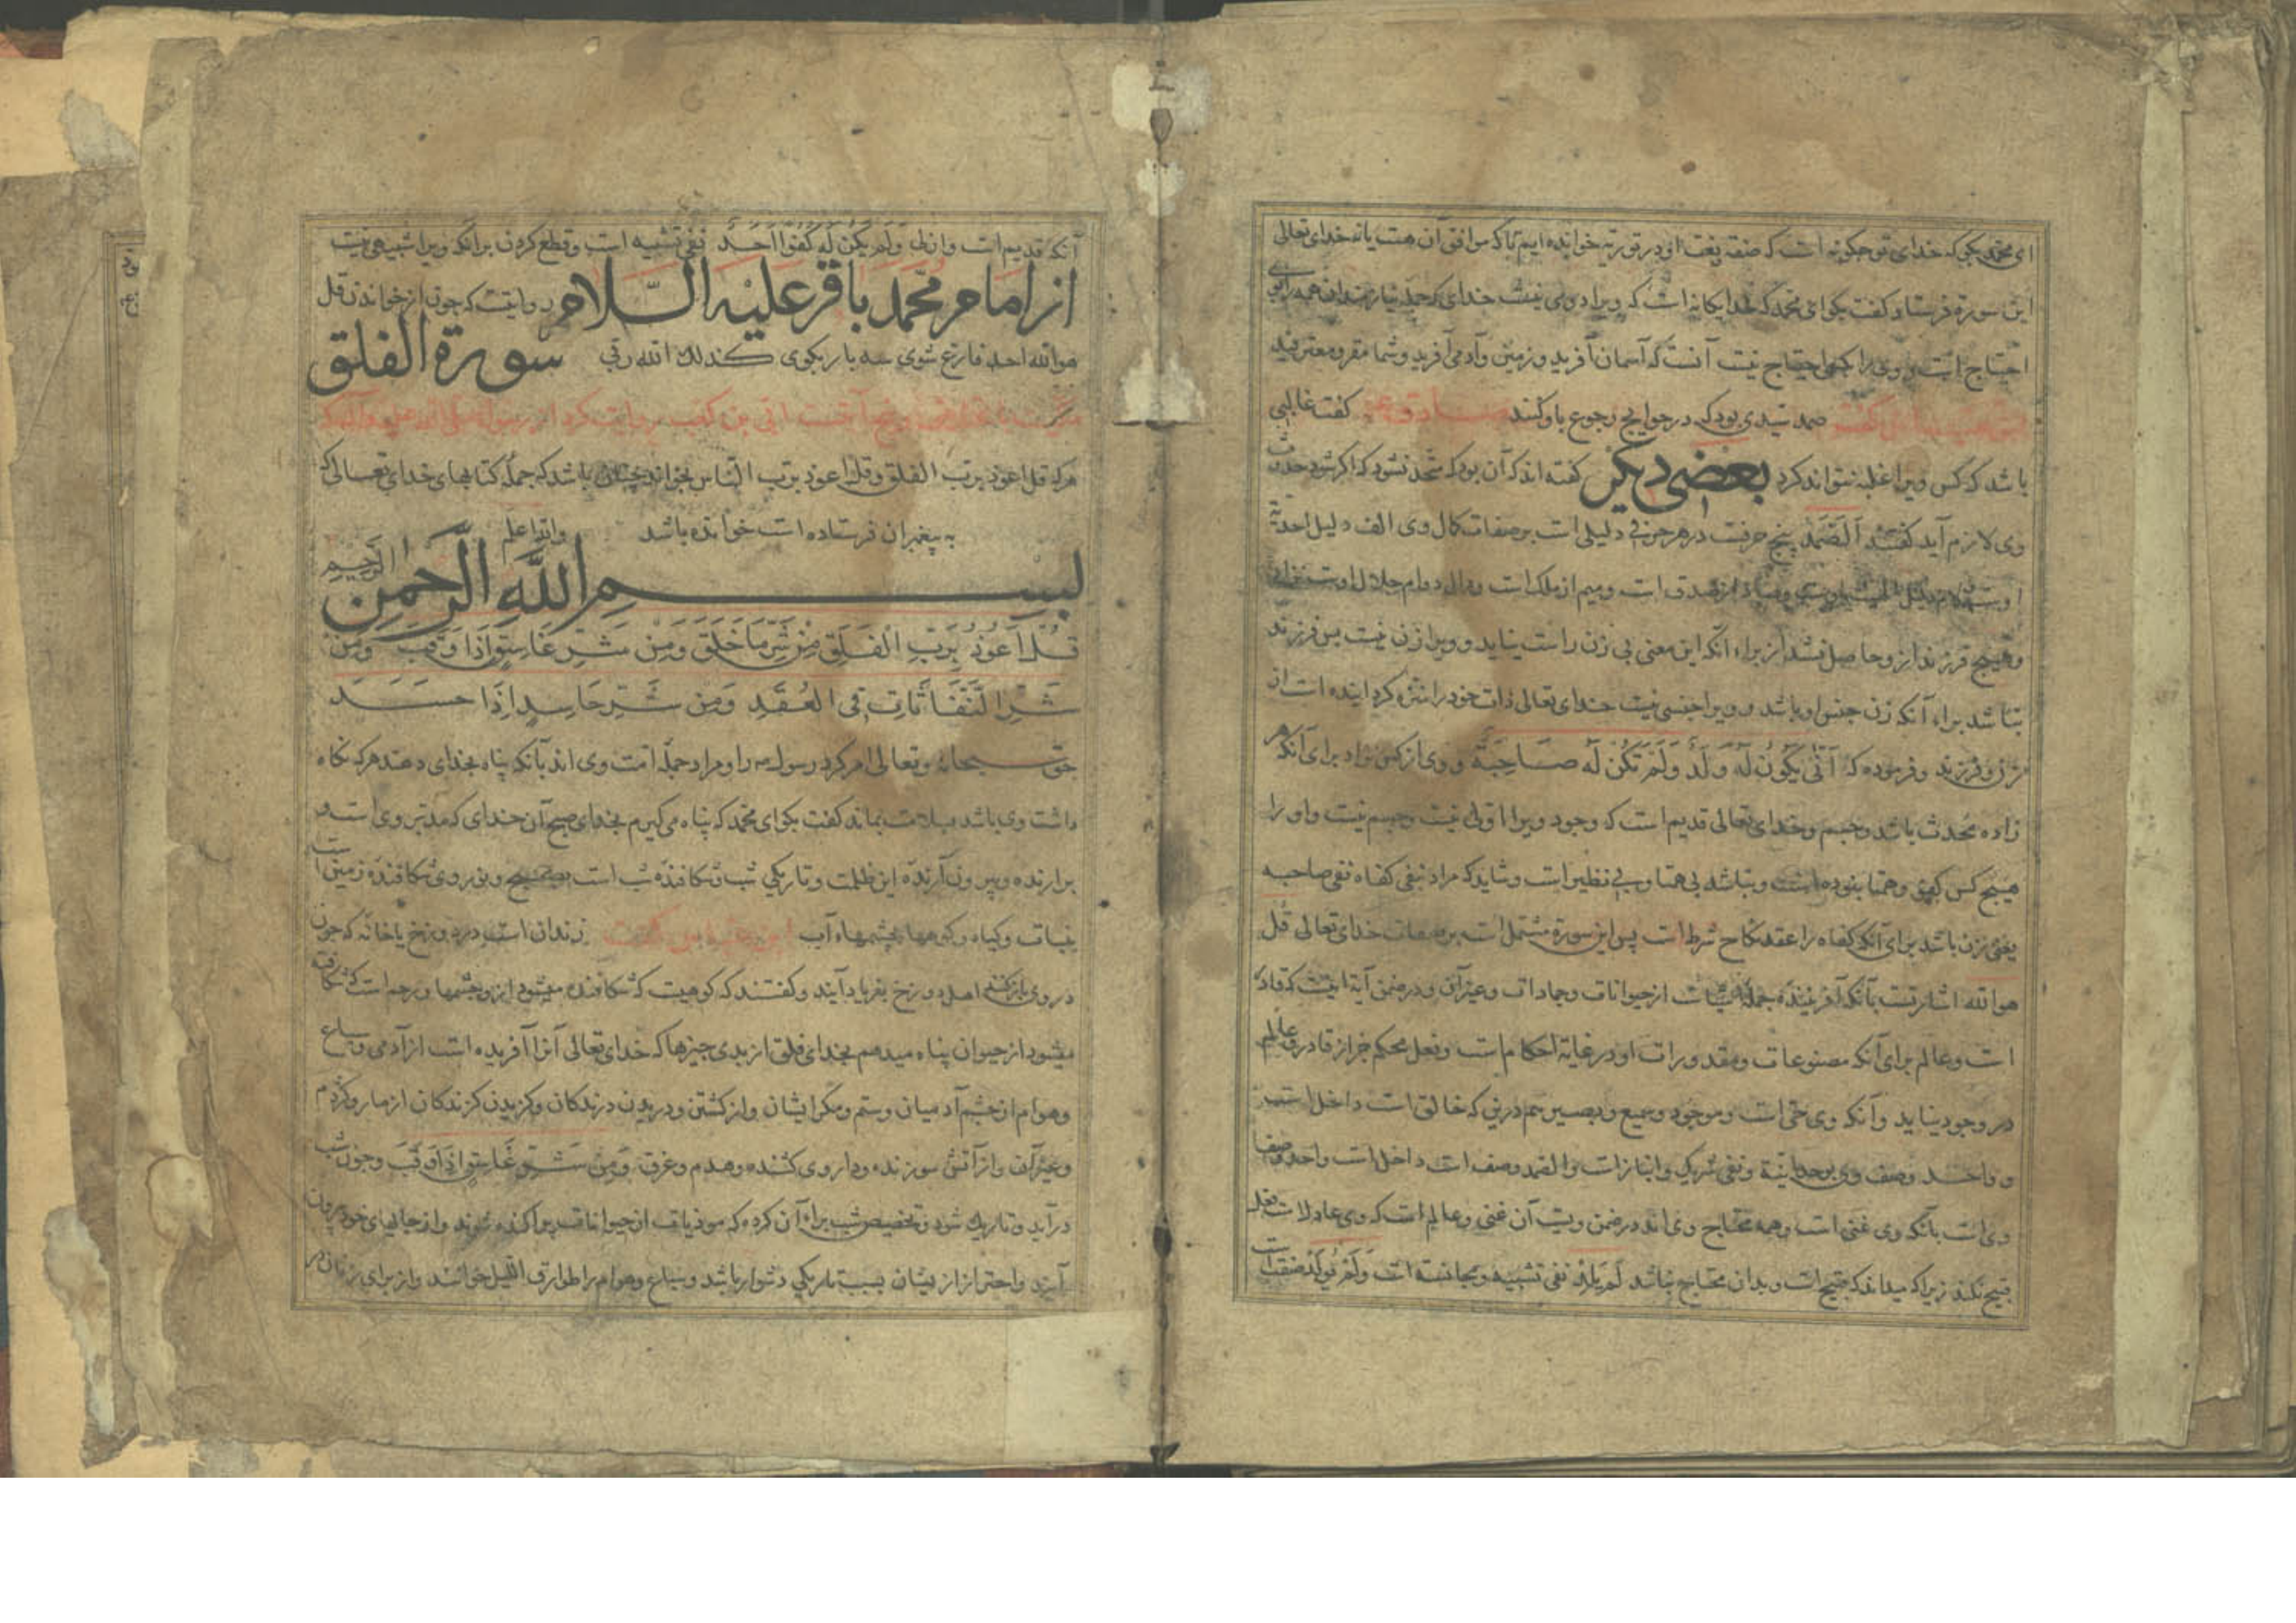 ای محمد بکوی که خدای تو چکونه است که صفة و نعت او در توریة خوانده ایم تا که موافق آن هست یا نه خدای تعالی
این سورة فرستاد کفت بکو ای محمد که خدا یکانه است که ویرا دومی نیست خدای که جمله نیازمندان همه را بوی
احتیاج است و وی را بکسی احتیاج نیست آنست که آسمان آفرید و زمین و آدمی آفرید و شما مقر و معترفید
صمد سیدی بود که در حوایج رجوع باو کنند صادق کفت غالبی
باشد که کس ویرا غلبه نتواند کرد بعضی دیکر کفته اند که آن بود که متحد نشود که اکر شود حدوث
وی لازم آید کفتند اَلصَّمَدْ پنج حرفست در هر حرفی دلیلی است بر صفات کمال وی الف دلیل احدیة
اوست و صاد از صدق است و میم از ملک است و دال دوام جلال اوست
و هیچ فرزند از و حاصل نشد از براء آنکه این معنی بی زن راست نیاید و ویرا زن نیست پس فرزند
نباشد براء آنکه زن جنس او باشد و ویرا جنسی نیست خدای تعالی ذات خود را منزه کردانیده است از
زن و فرزند و فرموده که اَنّٰی یَکُونُ لَهُ وَلَدٌ وَلَمْ تَکُنْ لَهُ صَاحِبَةٌ و وی از کس نزاد برای آنکه هر
زاده مُحدث باشد و جسم و خدای تعالی قدیم است که وجود ویرا اولی نیست و جسم نیست و او را
هیچ کس کفو و همتا نبوده است و نباشد بی همتا و بی نظیر است و شاید که مراد نفی کفاه نفی صاحبه
یعنی زن باشد برای آنکه کفاه را عقد نکاح شرط است پس این سورة مشتمل است بر صفات خدای تعالی قُل
هو الله اشارتست بآنکه آفریننده جمله اشیاست از حیوانات و جمادات و غیر آن و در ضمن آیة اینست که قادر
است و عالم برای آنکه مصنوعات و مقدورات او در غایة احکام است و فعل محکم جز از قادر و عالم
در وجود نیاید و آنکه وی حی است و موجود و سمیع و بصیر هم درین که خالق است داخل است
و واحد وصف وی بوحدانیة و نفی شریک و انباز است و الصمد وصف است داخل است واحد وصف
وی است بآنکه وی غنی است و همه محتاج وی اند در ضمن ویست آن غنی و عالم است که وی عادل است فعل
قبیح نکند زیرا که میداند که قبیح است و بدان محتاج نباشد لَمْ یَلِدْ نفی تشبیه و مجانسة است وَلَمْ یُولَدْ صفت است
آنکه قدیم است و ازلی وَلَمْ یَکُنْ لَهُ کُفُوًا اَحَدٌ نفی تشبیه است و قطع کردن برآنکه ویرا شبیهی نیست
از امام محمد باقر علیه السلام روایتست که چون از خواندن قل
هو الله احد فارغ شوی سه بار بکوی کذلک الله ربی سورة الفلق
پنج آیتست ابی بن کعب روایت کرد از رسول صلی الله علیه وآله که
هرکه قل اعوذ برب الفلق و قل اعوذ برب الناس بخواند چنان باشد که جمله کتابهای خدای تعالی که
به پیغمبران فرستاده است خوانده باشد والله اعلم
بسم الله الرحمن الرحیم
قُلْ اَعُوذُ بِرَبِّ الْفَلَقِ مِنْ شَرِّ مَا خَلَقَ وَمِنْ شَرِّ غَاسِقٍ اِذَا وَقَبَ وَمِنْ
شَرِّ النَّفَّاثَاتِ فِی الْعُقَدِ وَمِنْ شَرِّ حَاسِدٍ اِذَا حَسَدَ
حق سبحانه و تعالی امر کرد رسول را و مراد جمله امت وی اند بآنکه پناه بخدای دهند هرکه نکاه
داشت وی باشد بسلامت بماند کفت بکو ای محمد که پناه می کیرم بخدای صبح آن خدای که مدبر وی است و
برارنده و بیرون آرنده این ظلمت و تاریکی شب و شکافنده شب است بصبح و نور وی شکافنده زمین است
بنبات و کیاه و کوهها بچشمهاء آب زندان است در دوزخ یا خانه که چون
در وی باز کنند اهل دوزخ بفریاد آیند و کفتند که کوهیست که شکافنده میشود از و چشمها و رحم است که شکافته
میشود از حیوان پناه میدهم بخدای فلق از بدی چیزها که خدای تعالی آنرا آفریده است از آدمی و سباع
و هوام از خشم آدمیان و ستم و مکر ایشان و از کشتن و دریدن درندکان و کزیدن کزندکان از مار و کژدم
و غیر آن و از آتش سوزنده و داروی کشنده و هدم و غرق وَمِنْ شَرِّ غَاسِقٍ اِذَا وَقَبَ و چون شب
درآید و تاریک شود و تخصیص شب براء آن کرده که موذیات از حیوانات پراکنده شوند و از جایهای خود بیرون
آیند و احتراز از ایشان بسبب تاریکی دشوار باشد و سباع و هوام را طوارق اللیل خوانند و از برای